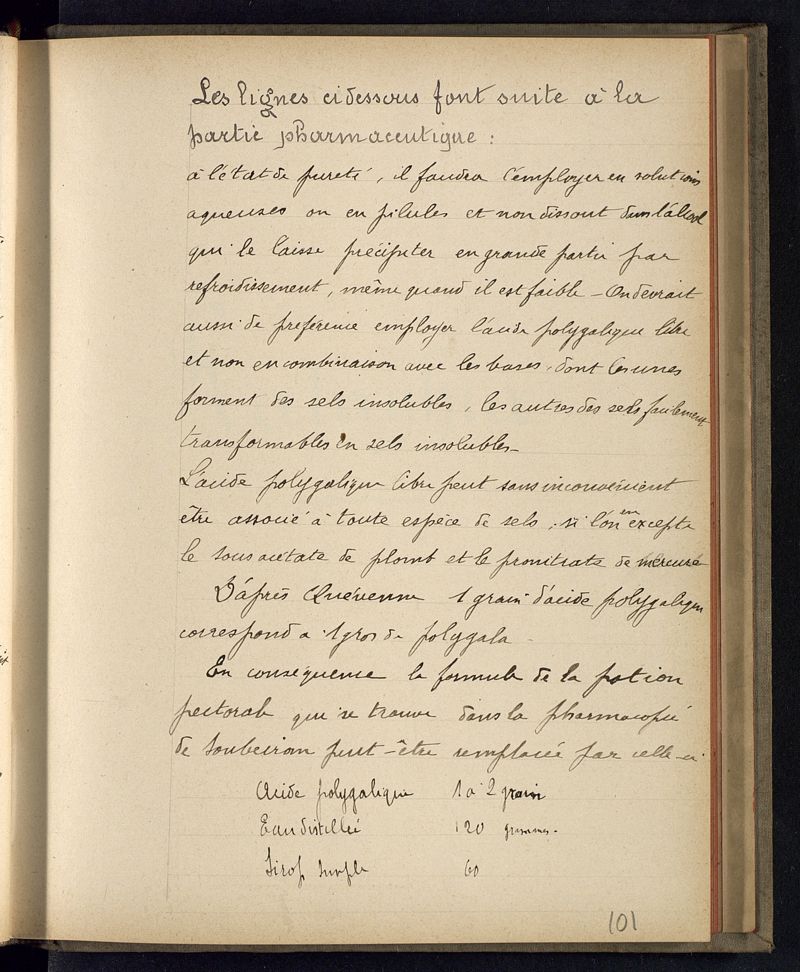 Les lignes cidessous font suite à la
partie pharmaceutique :
à l'état de pureté, il faudra l'employer en solutions
aqueuses ou en pilules et non dissout dans l'alcool
qui le laisse précipiter en grande partie par
refroidissement, même quand il est faible - On devrait
aussi de preference employer l'acide polygalique libre
et non en combinaison avec les bases, dont les unes
forment des sels insolubles, les autres des sels facilement
transformables en sels insolubles -
L'acide polygalique libre peut sans inconvénient
être associé à toute espèce de sels ; si l'on en excepte
le sous acétate de plomb et le pronitrate de mercure
D'après Quévenne 1 grain d'acide polygalique
correspond a 1 gros de polygala -
En conséquence la formule de la potion
pectorale qui se trouve dans la pharmacopée
de Soubeiran peut-être remplacée par celle-ci
Acide polygalique 1 à 2 grain
Eau distillée 120 grammes -
Sirop simple 60
101